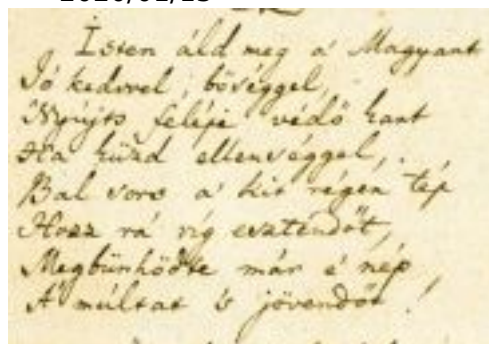 Isten áld meg a' Magyart
Jó kedvvel, bőséggel,
Nyújts feléje védő kart
Ha küzd ellenséggel,
Bal sors a' kit régen tép
Hozz rá víg esztendőt,
Megbünhödte már e' nép
A' múltat 's jövendőt!